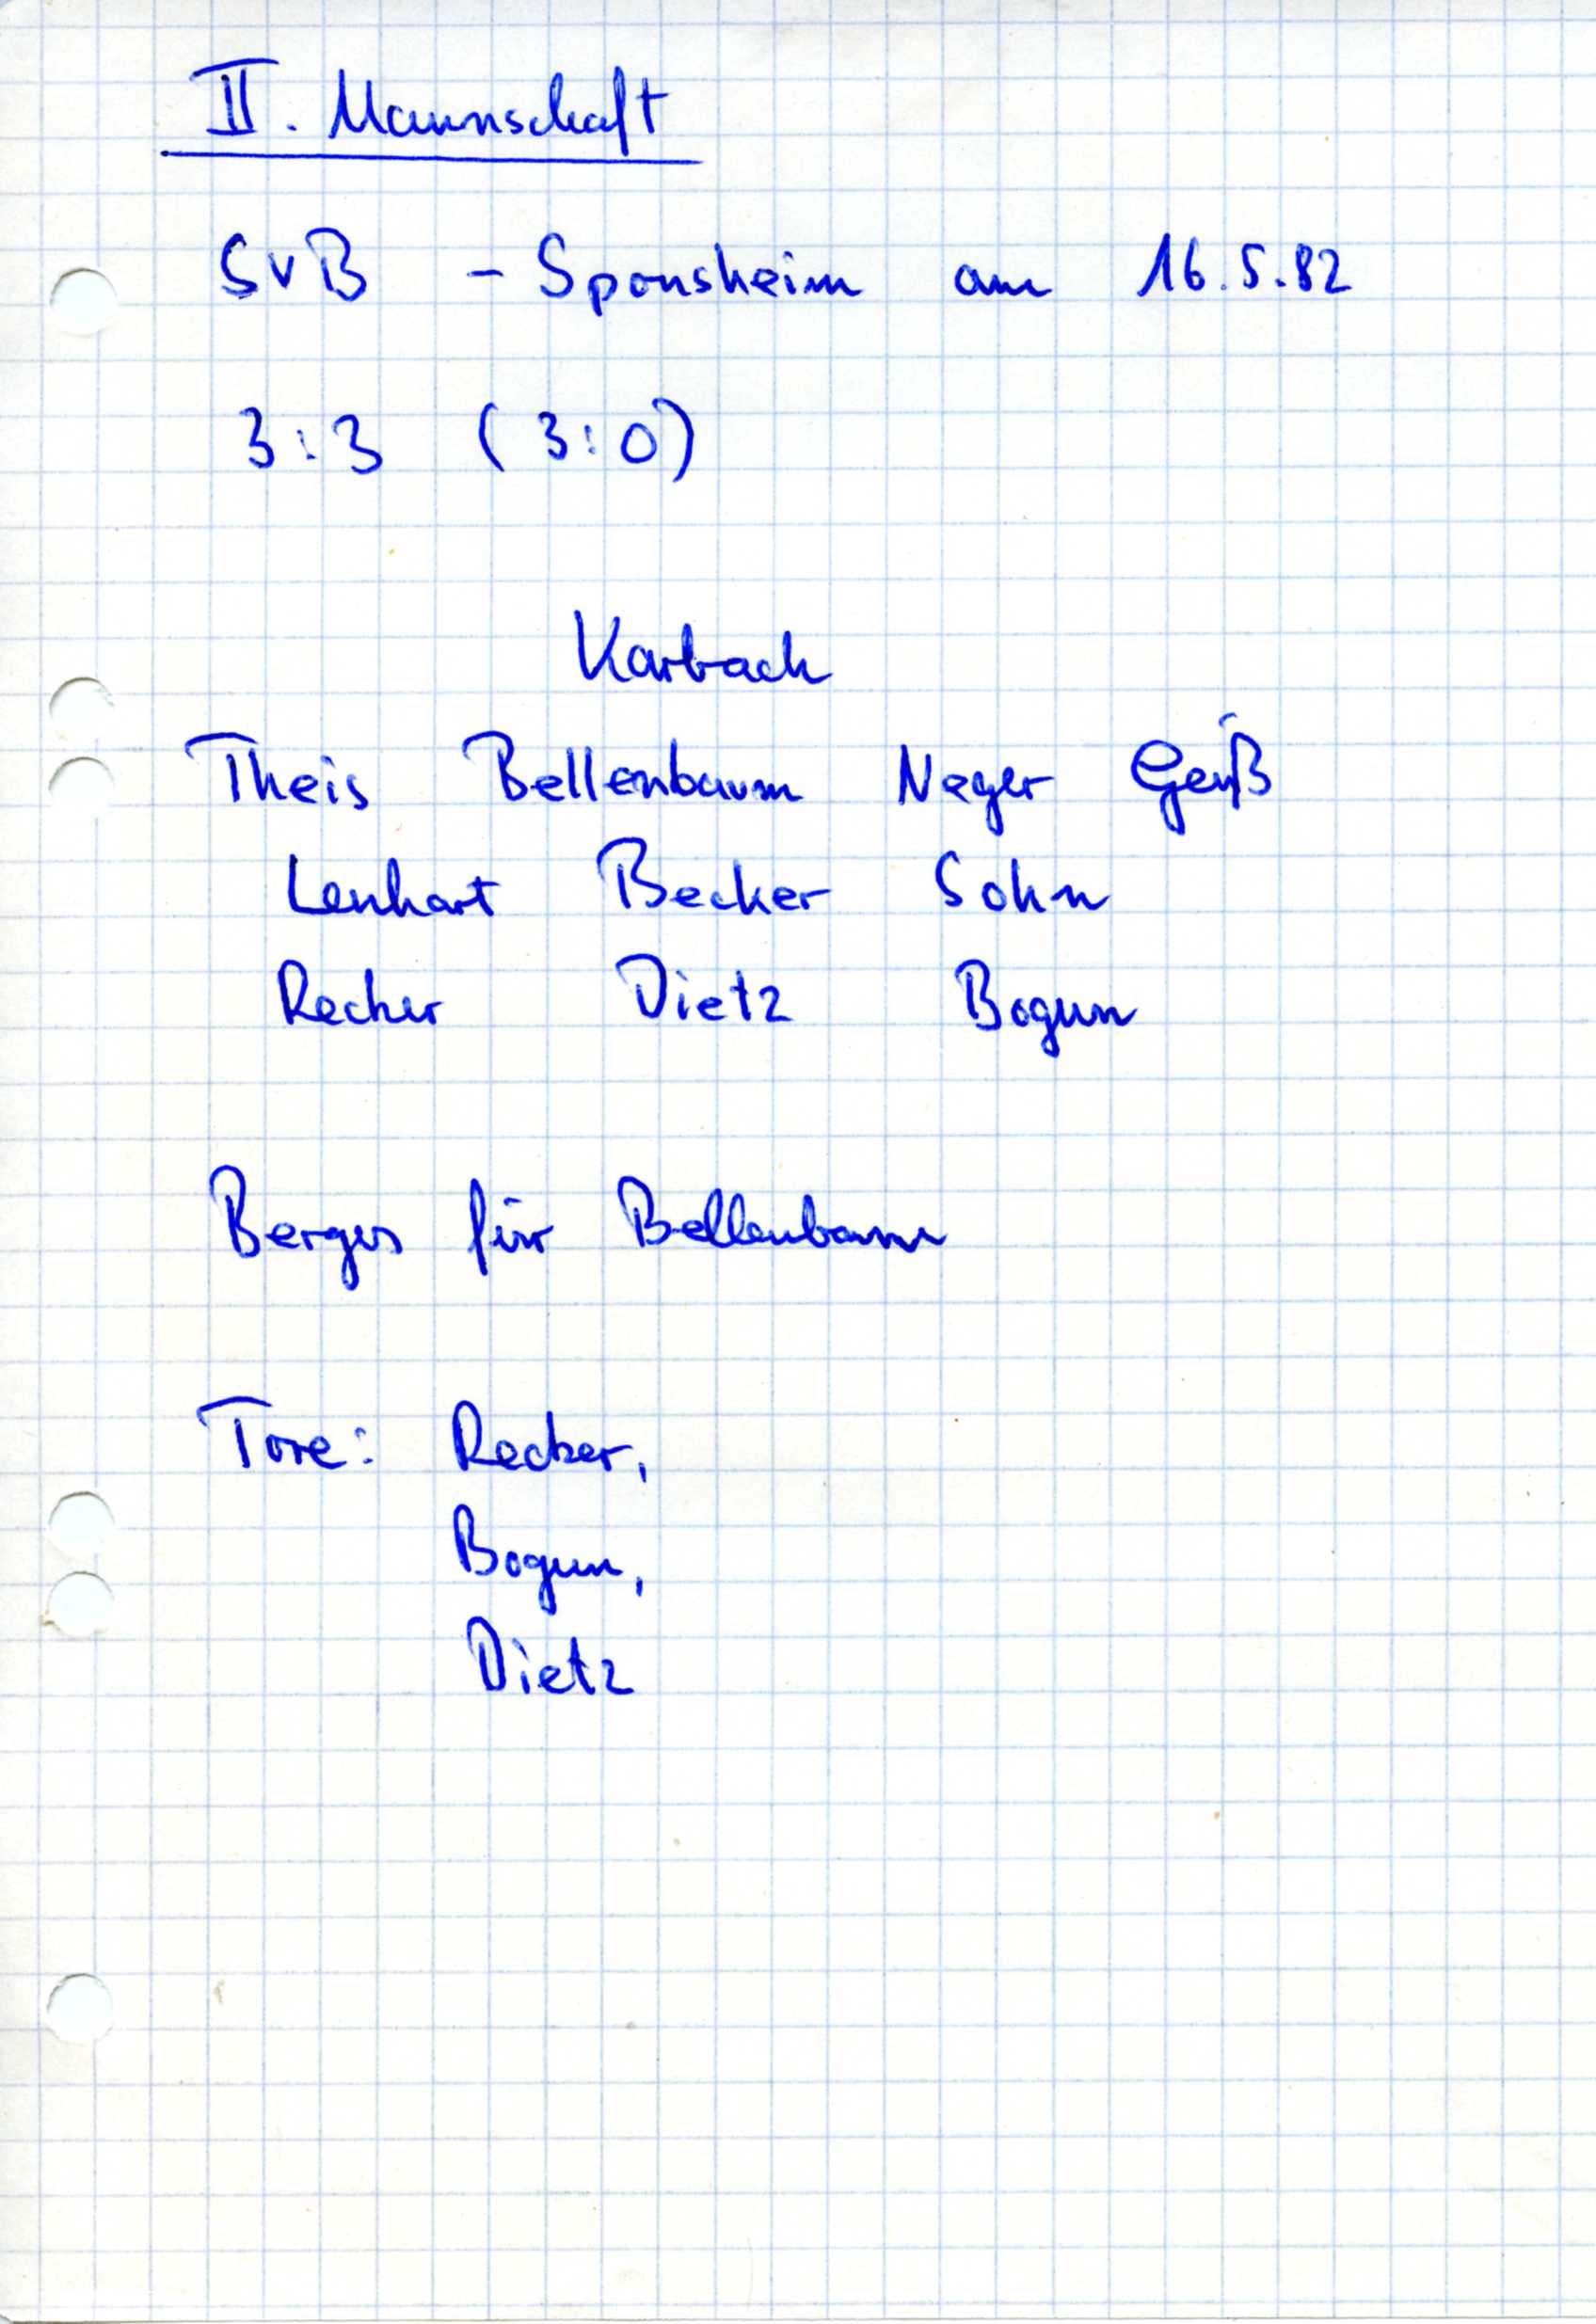 II. Mannschaft
SVB - Sponsheim am 16.5.82
3:3 (3:0)
Karbach
Theis Bellenbaum Neger Geiß
Lenhart Becker Sohn
Recker Dietz Bogun
Berges für Bellenbaum
Tore: Recker,
Bogun,
Dietz